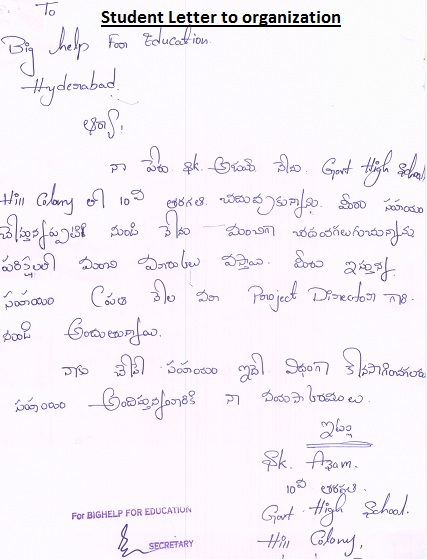 Student Letter to organization
To
Big help For Education.
Hyderabad.
ఆర్యా,
నా పేరు Sk. నేను Govt High School,
Hill Colony లో 10వ తరగతి చదువుకున్నాను. మీరు సహాయం
చేస్తున్నప్పటికి నుండి నేను మంచిగా చదవగలుగుచున్నాను
మంచి మార్కులు వస్తాయి. మీరు ఇస్తున్న
సహాయం ప్రతి నెల మా Project Director గారి
నుండి అందుతున్నాయి.
నాకు చేసే సహాయం ఇదే విధంగా కొనసాగించగలరు
సహాయం అందిస్తున్నవారికి నా
ఇట్లు
Sk. Azam.
10వ తరగతి.
Govt High School.
Hill Colony,
For BIGHELP FOR EDUCATION
SECRETARY